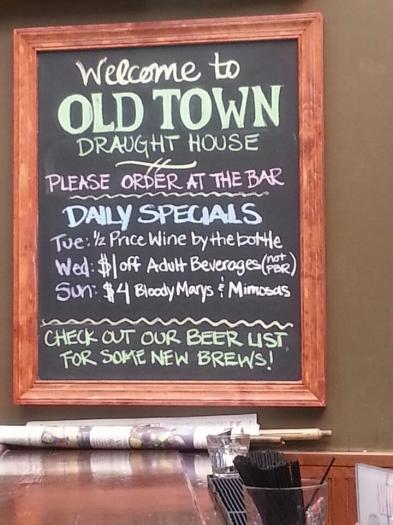 Welcome to
OLD TOWN
DRAUGHT HOUSE
PLEASE ORDER AT THE BAR
DAILY SPECIALS
Tue: ½ Price Wine by the bottle
Wed: $1 off Adult Beverages (not PBR)
Sun: $4 Bloody Marys & Mimosas
CHECK OUT OUR BEER LIST
FOR SOME NEW BREWS!